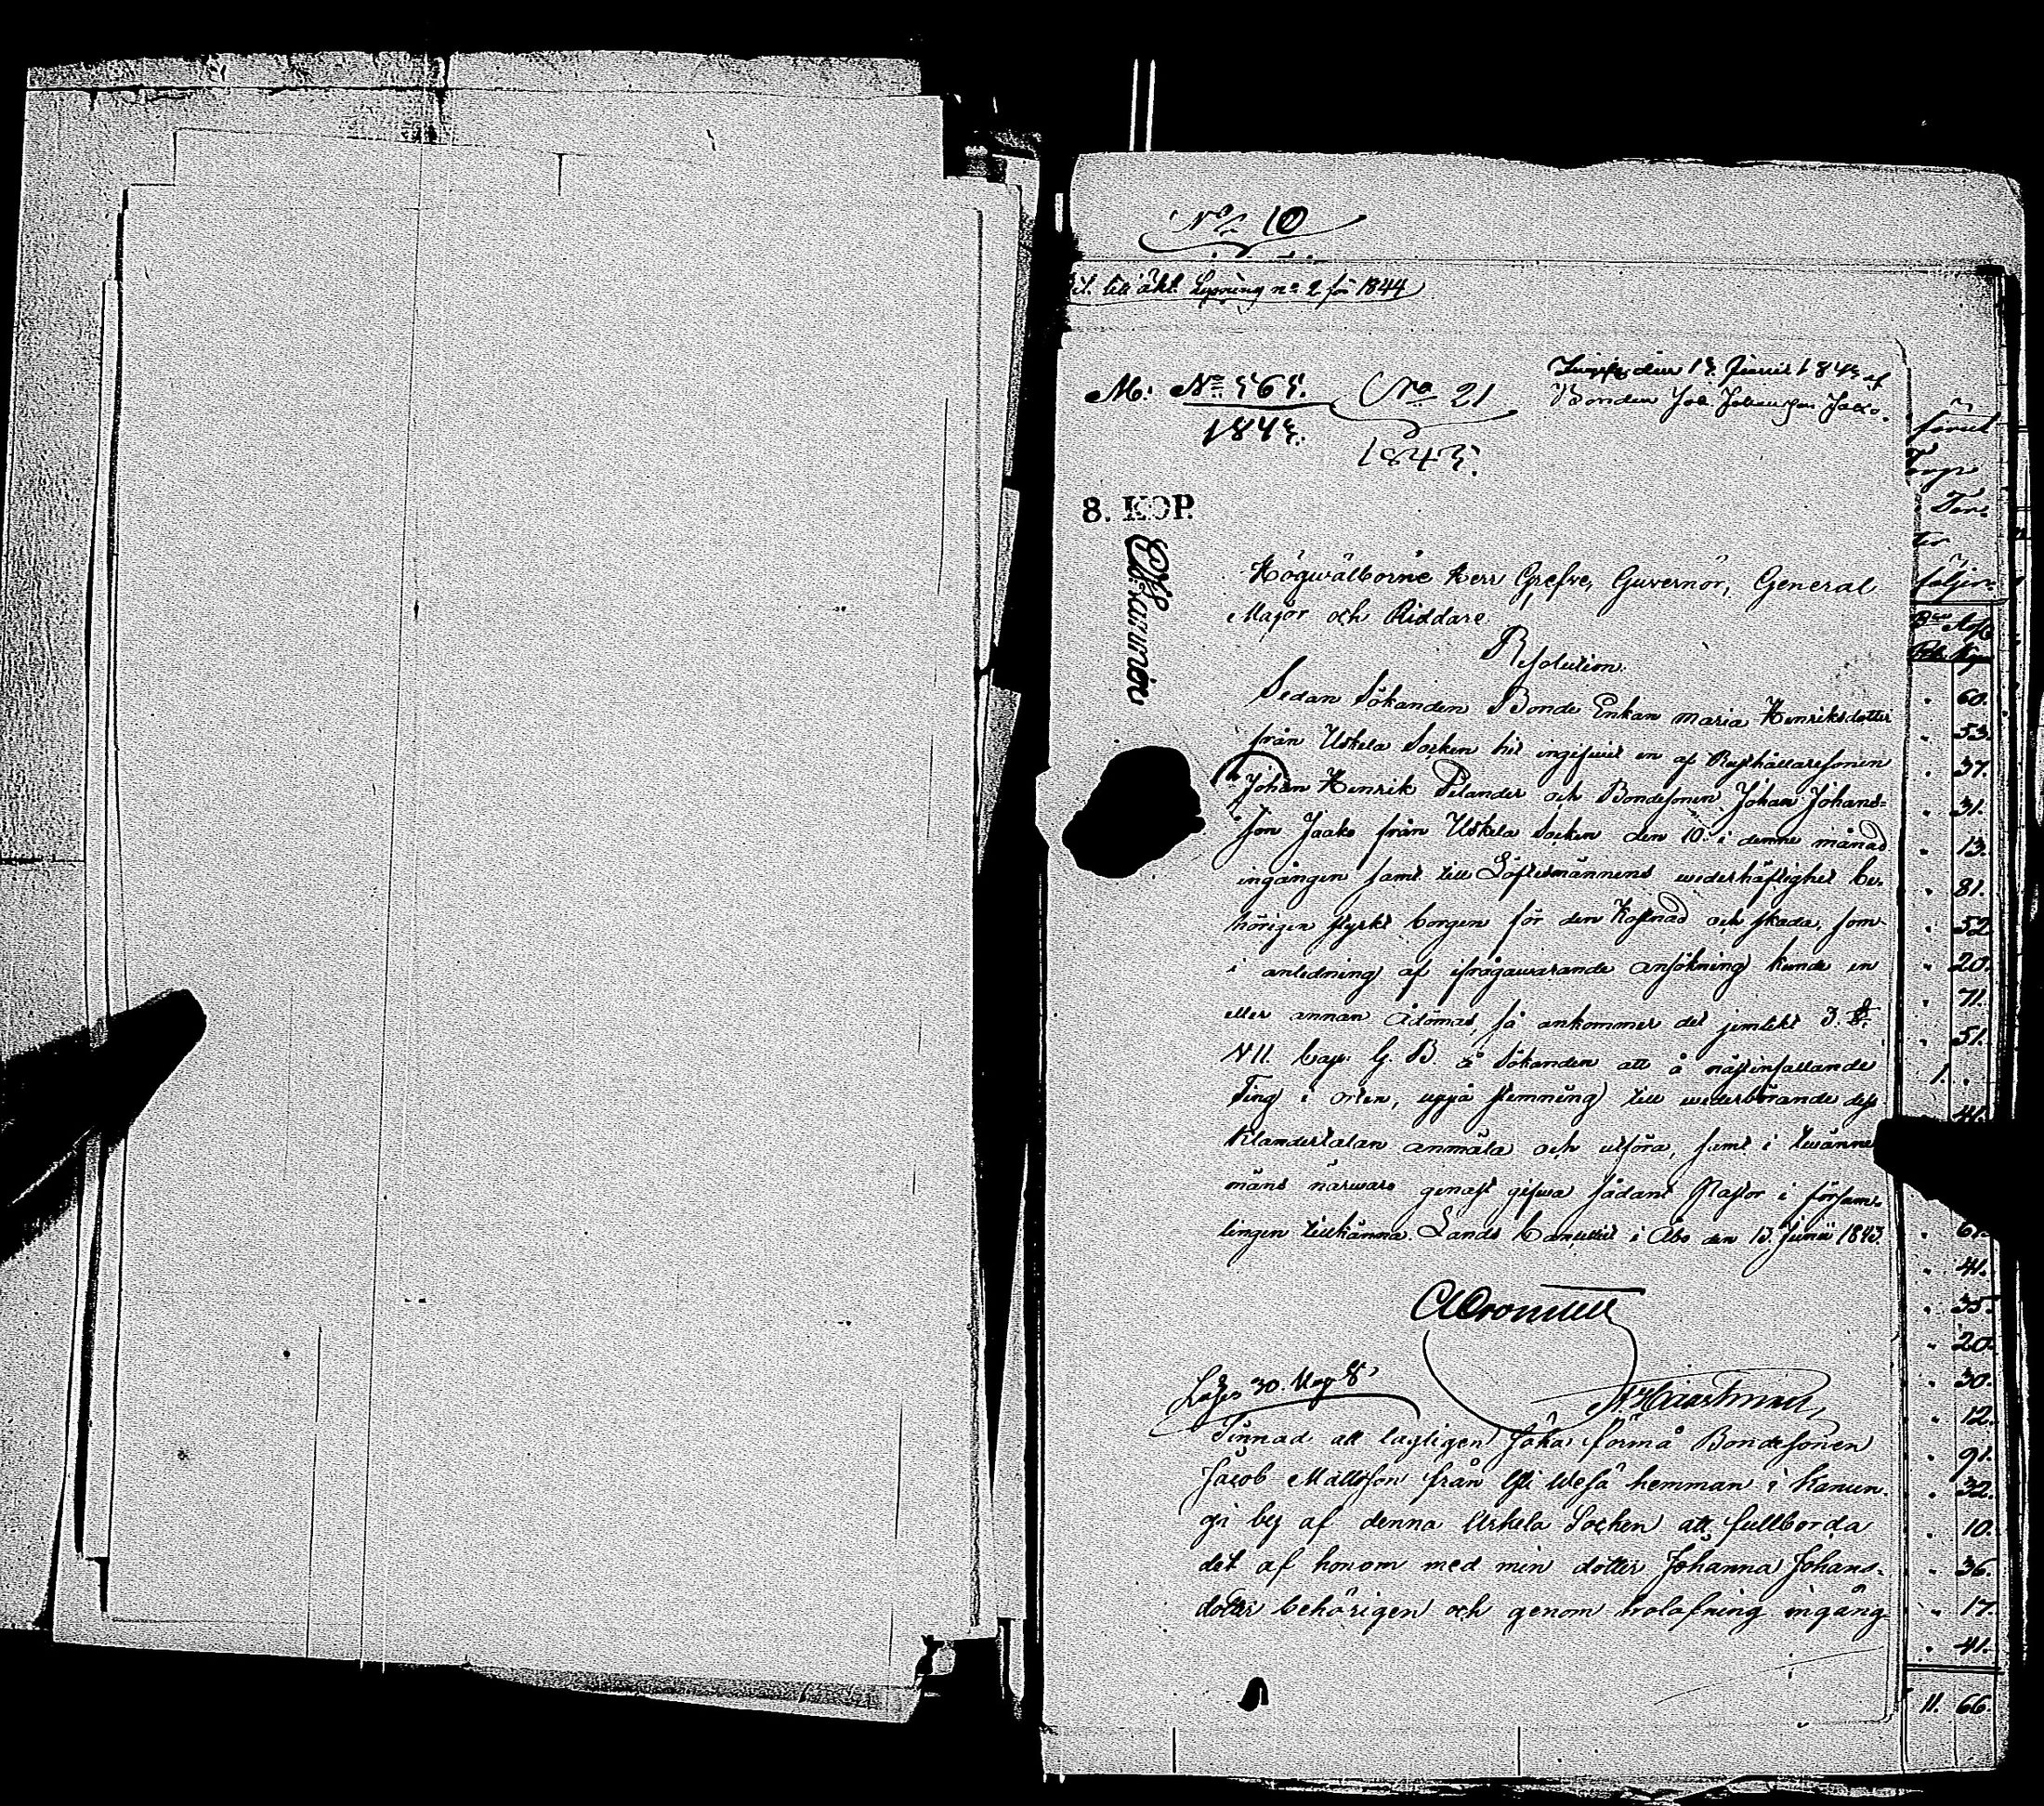 No 10
till äkt. Lysning no 2 för 1844
M: No 565.
1843.
No 21
1843.
den 13 Junii 1843 af
Bonden Joh. Johansson Jaako.
8. KOP.
Högwälborne Herr Grefve, Guvernör, General
Major och Riddare
Resolution.
Sedan Sökanden Bonde Enkan Maria Henriksdotter
från Uskela Socken hit ingifwit en af Rusthållaresonen
Johan Henrik Pelander och Bondesonen Johan Johans-
son Jaako från Uskela Socken den 10 i denne månad
ingången samt till Löftesmännens wederhäftighet be-
hörigen styrkt borgen för den Kostnad och skada, som
i anledning af ifrågawarande ansökning kunde en
eller annan ådömas, så ankommer det jemlikt 3. §.
VII. Cap. G. B. å Sökanden att å nästinfallande
Ting i orten, uppå stemning till wederbörande dess
Klanderstalan anmäla och utföra, samt i twänne
mäns närwaro genast gifwa sådant Pastor i försam-
lingen tillkänna. Lands Cancelliet i Åbo den 13 Junii 1843.
Sinnad att lagligen söka förmå Bondesonen
Jacob Mattsson från Yli Wesa hemman i Kanun-
gi by af denna Uskela Socken att fullborda
det af honom med min dotter Johanna Johans-
dotter behörigen och genom trolofning ingång
förut
Torp
följer
60.
53.
37.
31.
13.
81.
52
20.
71.
51.
1.
41.
6
41.
35.
20.
30.
12.
91.
32.
10.
36.
17.
41.
11. 66.